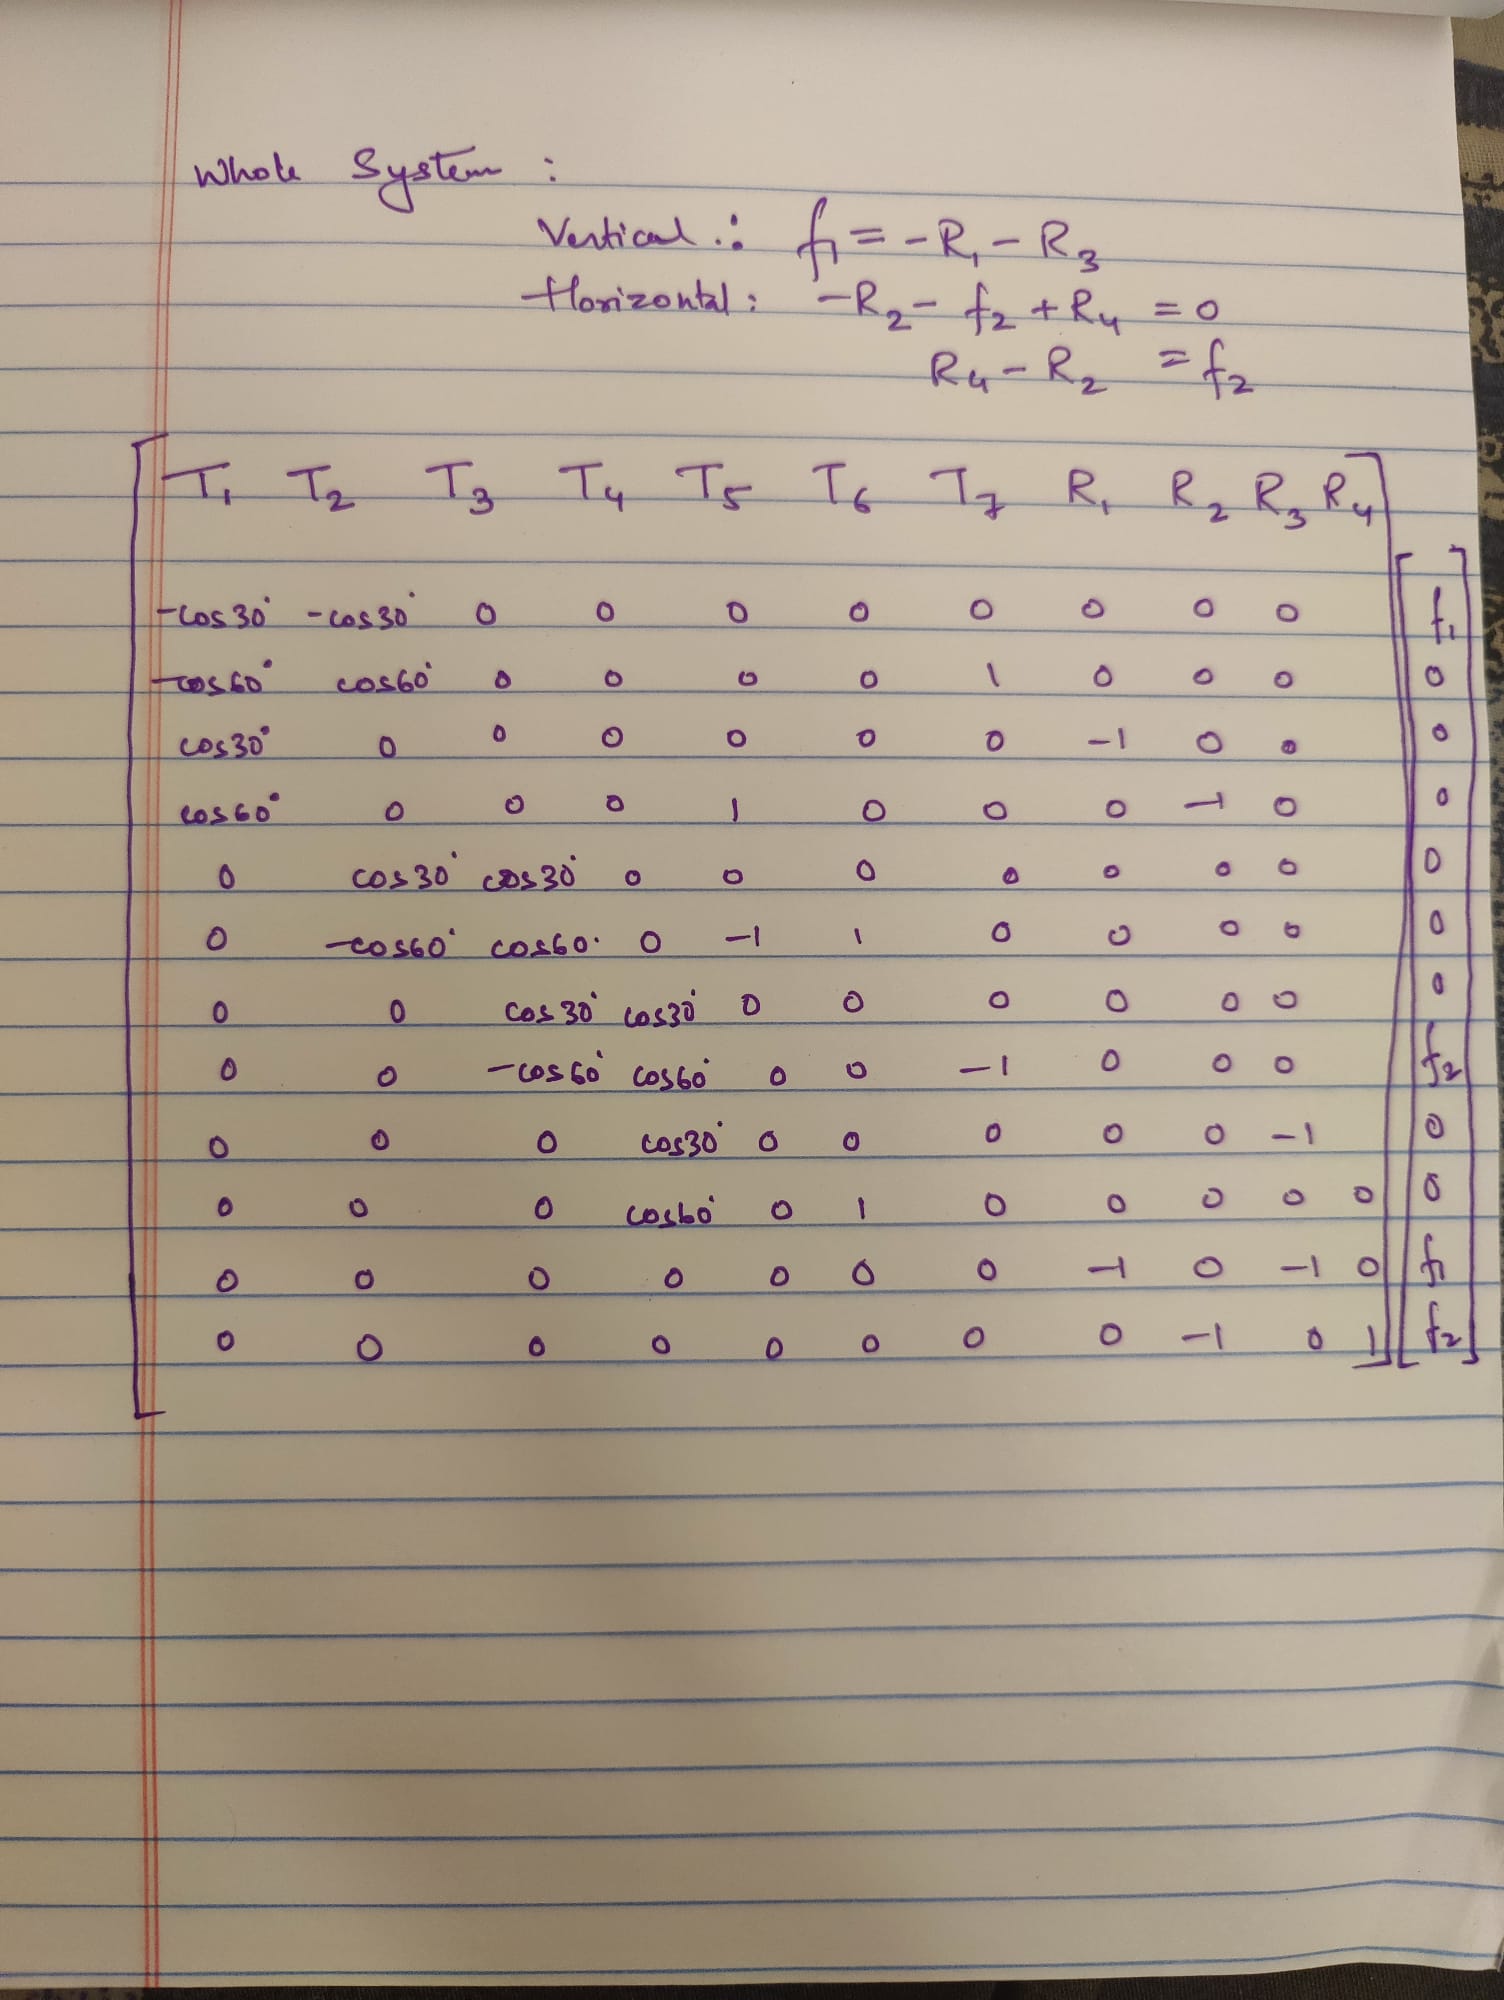 Whole System :
Vertical : f₁ = -R₁ - R₃
Horizontal : -R₂ - f₂ + R₄ = 0
R₄ - R₂ = f₂
T₁ T₂ T₃ T₄ T₅ T₆ T₇ R₁ R₂ R₃ R₄
-cos30° -cos30° 0 0 0 0 0 0 0 0 f₁
-cos60° cos60° 0 0 0 0 1 0 0 0 0
cos30° 0 0 0 0 0 0 -1 0 0 0
cos60° 0 0 0 1 0 0 0 -1 0 0
0 cos30° cos30° 0 0 0 0 0 0 0 0
0 -cos60° cos60° 0 -1 1 0 0 0 0 0
0 0 cos30° cos30° 0 0 0 0 0 0 0
0 0 -cos60° cos60° 0 0 -1 0 0 0 f₂
0 0 0 cos30° 0 0 0 0 0 -1 0
0 0 0 cos60° 0 1 0 0 0 0 0 0
0 0 0 0 0 0 0 -1 0 -1 0 f₁
0 0 0 0 0 0 0 0 -1 0 1 f₂